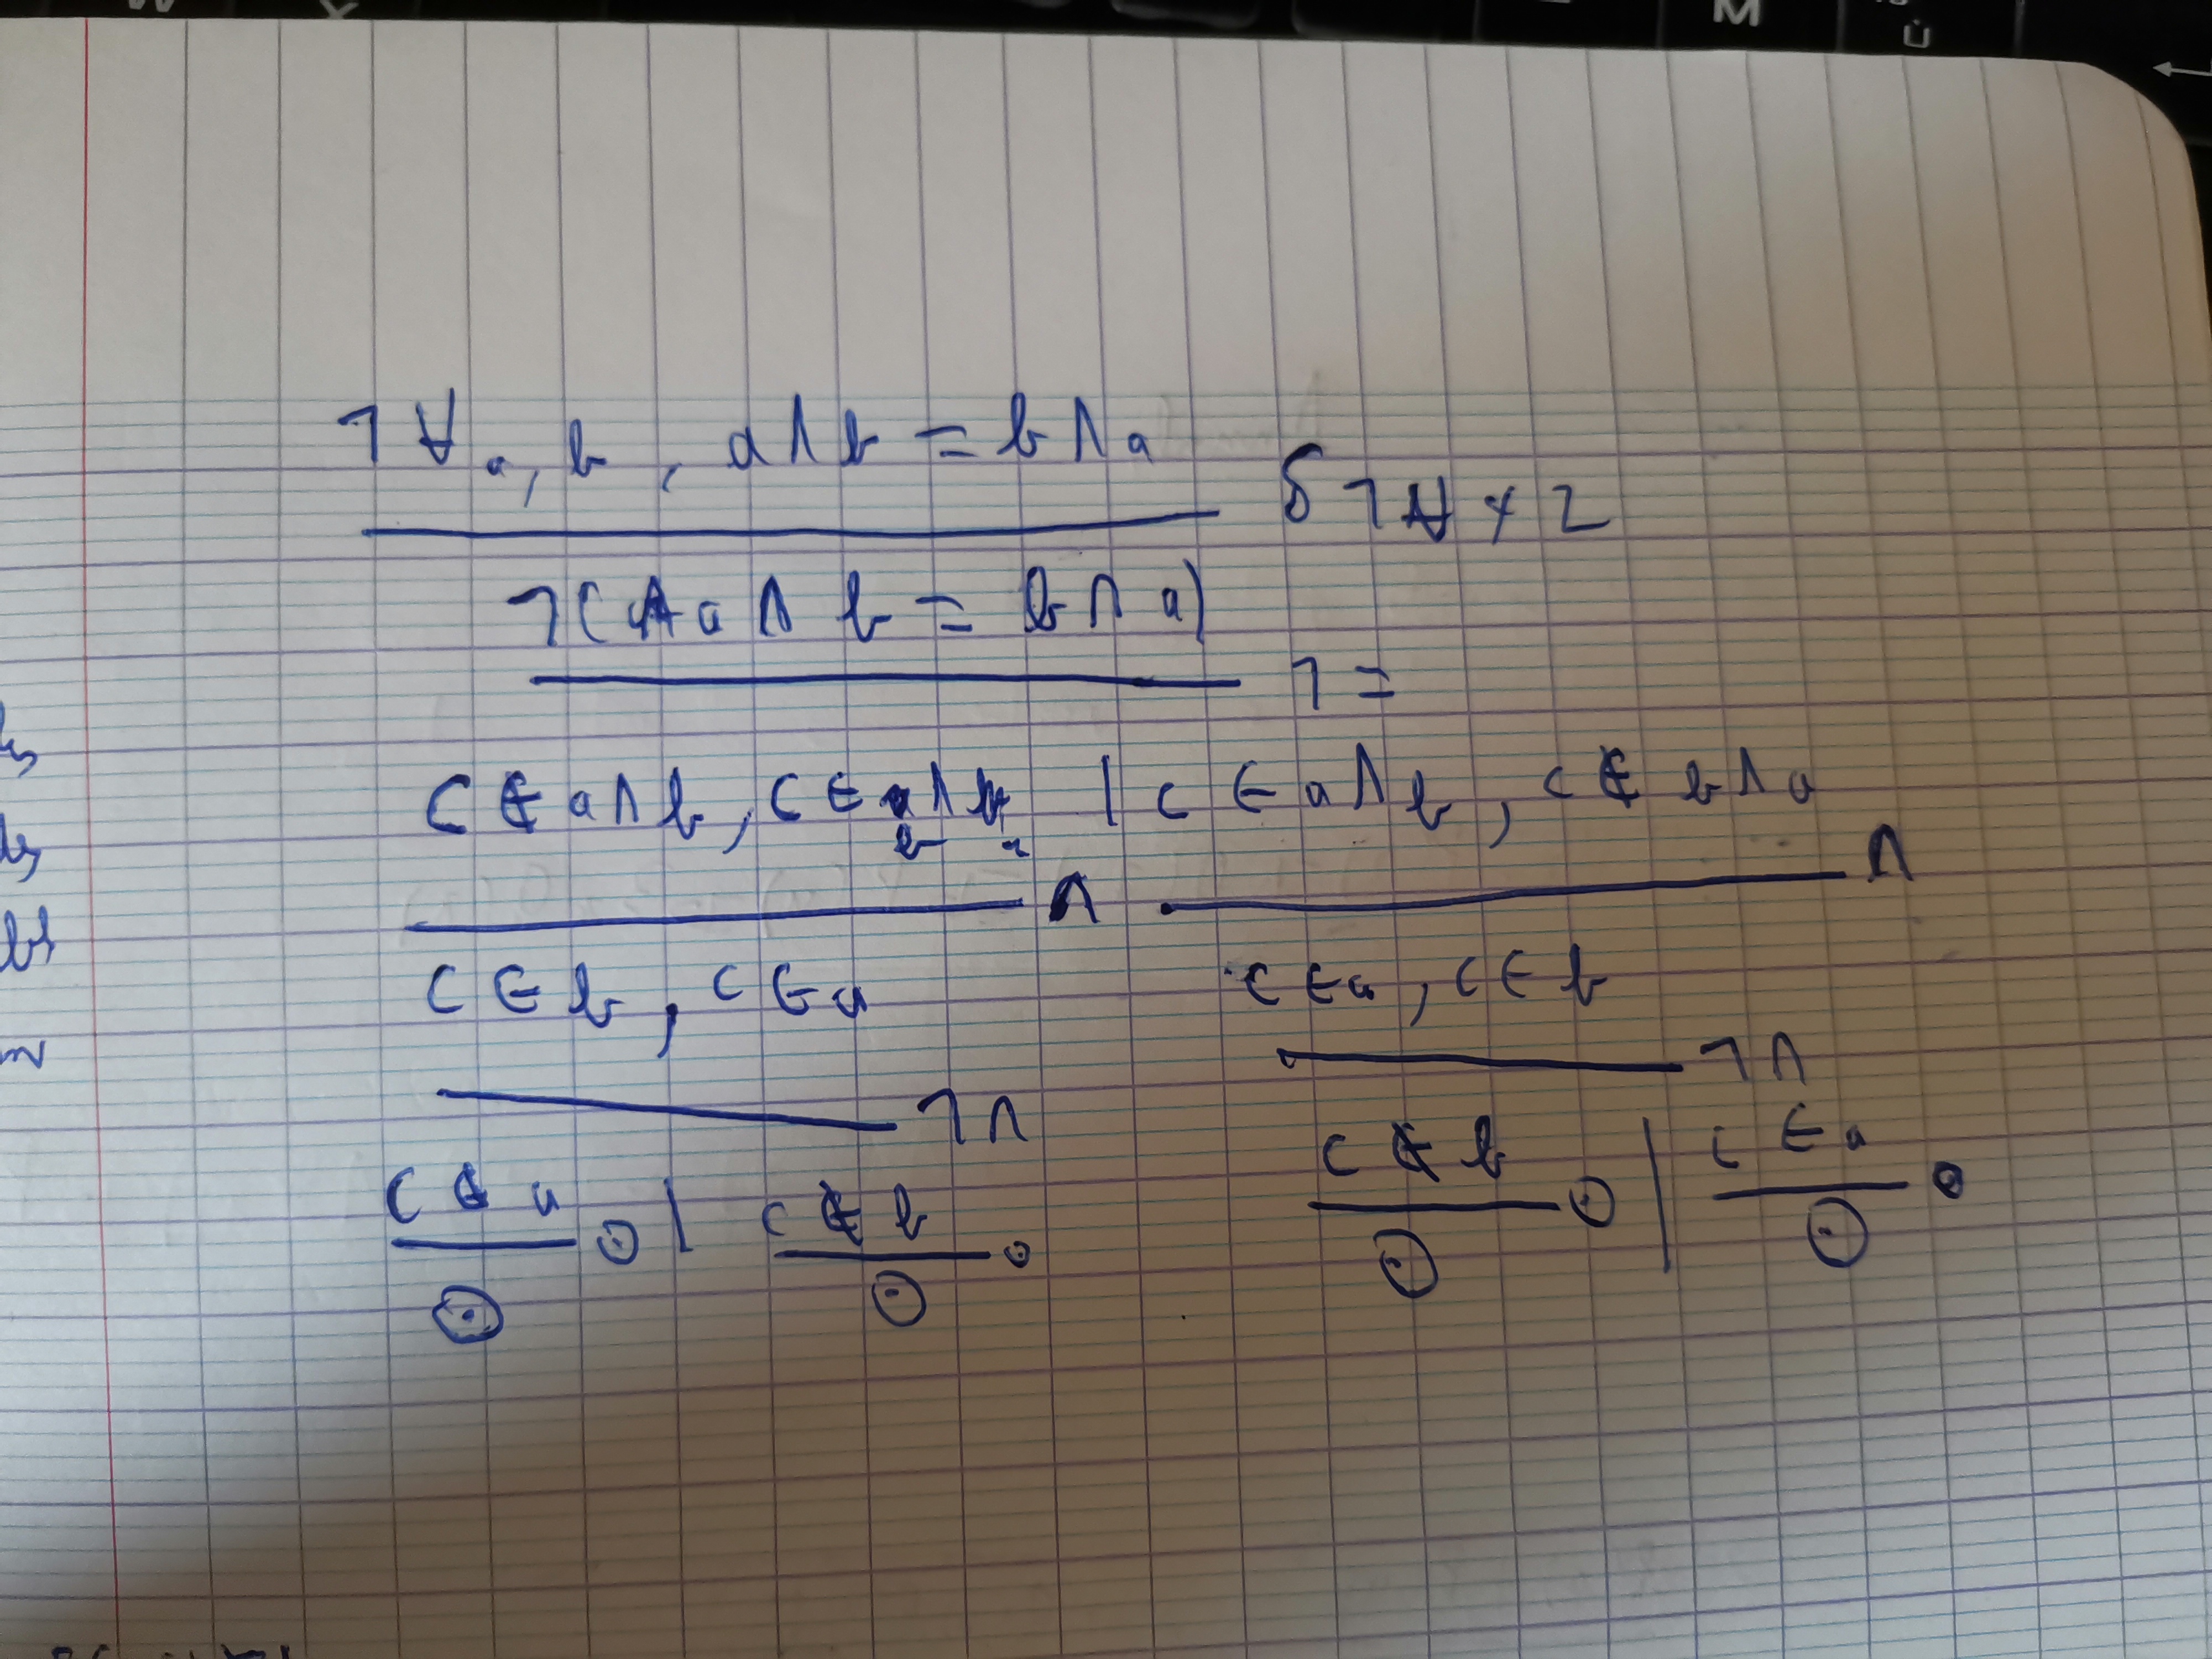 M
Ù
¬∀a, b, a∩b = b∩a
δ¬∀ x 2
¬(a∩b = b∩a)
¬=
C∉a∩b, C∈b∩a | C∈a∩b, C∉b∩a
∩ ∩
C∈b, C∈a C∈a, C∈b
¬∩ ¬∩
C∉a ⊙ | C∉b ⊙ C∉b ⊙ | C∈a ⊙
⊙ ⊙ ⊙ ⊙